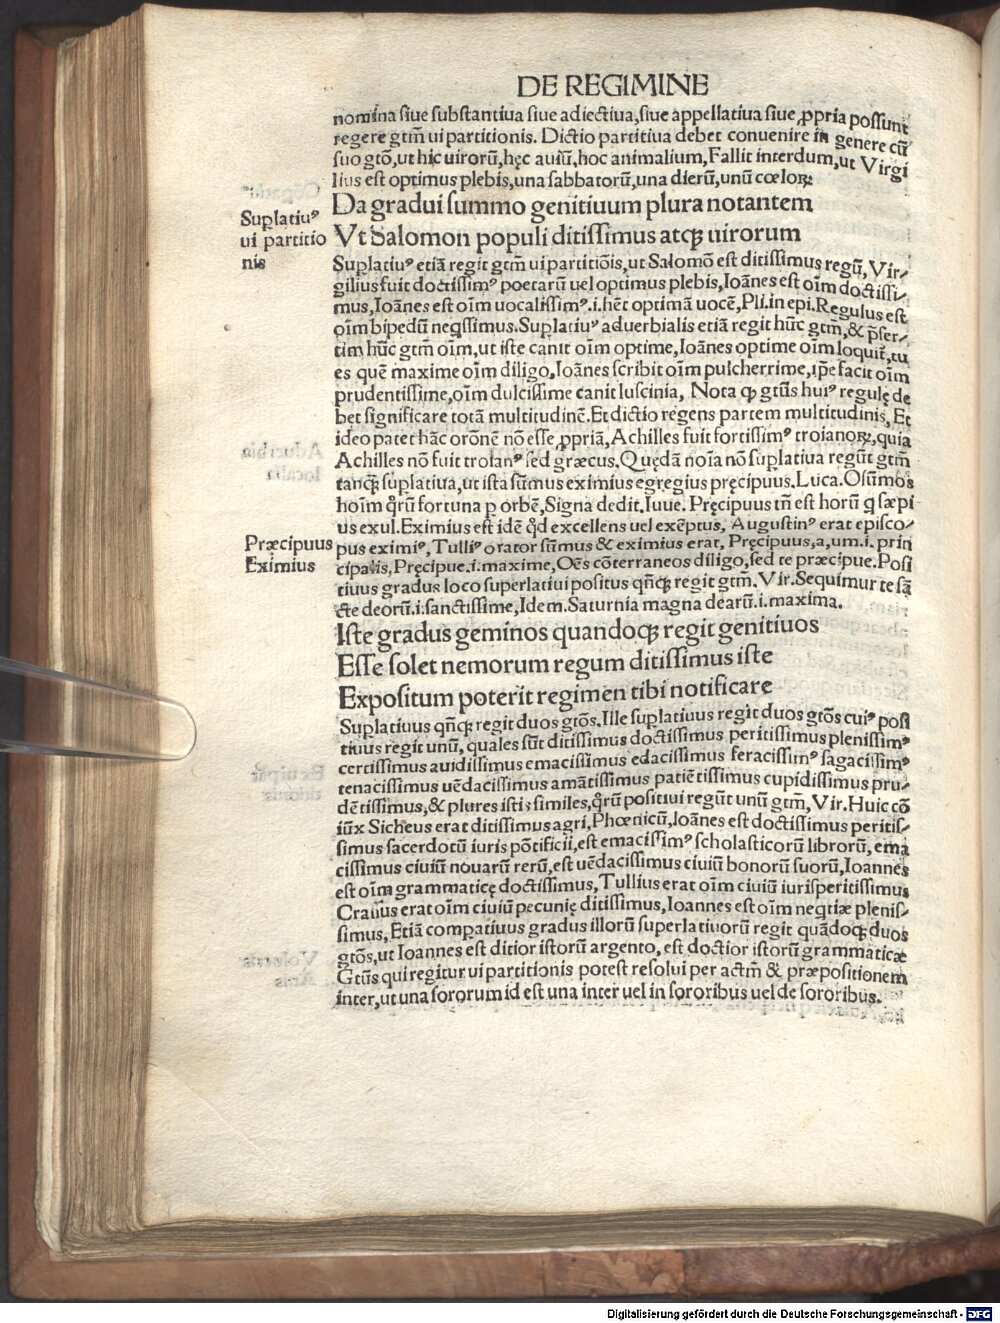 DE REGIMINE
nomina siue substantiua siue adiectiua, siue appellatiua siue ꝓpria possunt
regere gtm̄ ui partitionis. Dictio partitiua debet conuenire in genere cū
suo gtō, ut hic uirorū, hęc auiū, hoc animalium, Fallit interdum, ut Virgi
lius est optimus plebis, una sabbatorū, una dierū, unū cœloꝝ
Da gradui summo genitiuum plura notantem
Suplatiuꝰ
ui partitio
nis
Vt Salomon populi ditissimus atqꝫ uirorum
Suplatiuꝰ etiā regit gtm̄ ui partitiōis, ut Salomō est ditissimus regū, Vir/
gilius fuit doctissimꝰ poetarū uel optimus plebis, Ioānes est oīm doctissi/
mus, Ioānes est oīm uocalissimꝰ .i. hēt optimā uocē, Pli. in epi. Regulus est
oīm bipedū neqssimus. Suplatiuꝰ aduerbialis etiā regit hūc gtm̄, & p̄ser/
tim hūc gtm̄ oīm, ut iste canit oīm optime, Ioānes optime oīm loquit̄, tu
es quē maxime oīm diligo, Ioānes scribit oīm pulcherrime, ip̄e facit oīm
prudentissime, oīm dulcissime canit luscinia, Nota ꝙ gtūs huiꝰ regulę de
bet significare totā multitudinē. Et dictio regens partem multitudinis, Et
ideo patet hāc orōnē nō esse ꝓpriā, Achilles fuit fortissimꝰ troianoꝝ, quia
Achilles nō fuit troianꝰ sed græcus. Quędā noīa nō suplatiua regūt gtm̄
tanqꝫ suplatiua, ut ista sūmus eximius egregius pręcipuus. Luca. O sūmos
hoīm q̄rū fortuna p orbē, Signa dedit. Iuue. Pręcipuus tn̄ est horū q sæpi
us exul. Eximius est idē qd̄ excellens uel exēptus, Augustinꝰ erat episco/
Præcipuus
Eximius
pus eximiꝰ, Tulliꝰ orator sūmus & eximius erat, Pręcipuus, a, um .i. prin
cipalis, Pręcipue .i. maxime, Oēs cōterraneos diligo, sed te præcipue. Posi
tiuus gradus loco superlatiui positus qn̄qꝫ regit gtm̄. Vir. Sequimur te sā
cte deorū .i. sanctissime, Idem. Saturnia magna dearū .i. maxima.
Iste gradus geminos quandoqꝫ regit genitiuos
Esse solet nemorum regum ditissimus iste
Expositum poterit regimen tibi notificare
Suplatiuus qn̄qꝫ regit duos gtōs. Ille suplatiuus regit duos gtōs cuiꝰ posi
tiuus regit unū, quales sūt ditissimus doctissimus peritissimus plenissimꝰ
certissimus auidissimus emacissimus edacissimus feracissimꝰ sagacissimꝰ
tenacissimus uēdacissimus amātissimus patiētissimus cupidissimus pru/
dētissimus, & plures istis similes, q̄rū positiui regūt unū gtm̄, Vir. Huic cō
iūx Sicheus erat ditissimus agri, Phœnicū, Ioānes est doctissimus peritis/
simus sacerdotū iuris pōtificii, est emacissimꝰ scholasticorū librorū, ema
cissimus ciuiū nouarū rerū, est uēdacissimus ciuiū bonorū suorū, Ioannes
est oīm grammaticę doctissimus, Tullius erat oīm ciuiū iurisperitissimus
Crassus erat oīm ciuiū pecunię ditissimus, Ioannes est oīm neqtiæ plenis/
simus, Etiā compatiuus gradus illorū superlatiuorū regit quādoqꝫ duos
gtōs, ut Ioannes est ditior istorū argento, est doctior istorū grammaticæ
Gtūs qui regitur ui partitionis potest resolui per actm̄ & præpositionem
inter, ut una sororum id est una inter uel in sororibus uel de sororibus.
Digitalisierung gefördert durch die Deutsche Forschungsgemeinschaft - DFG